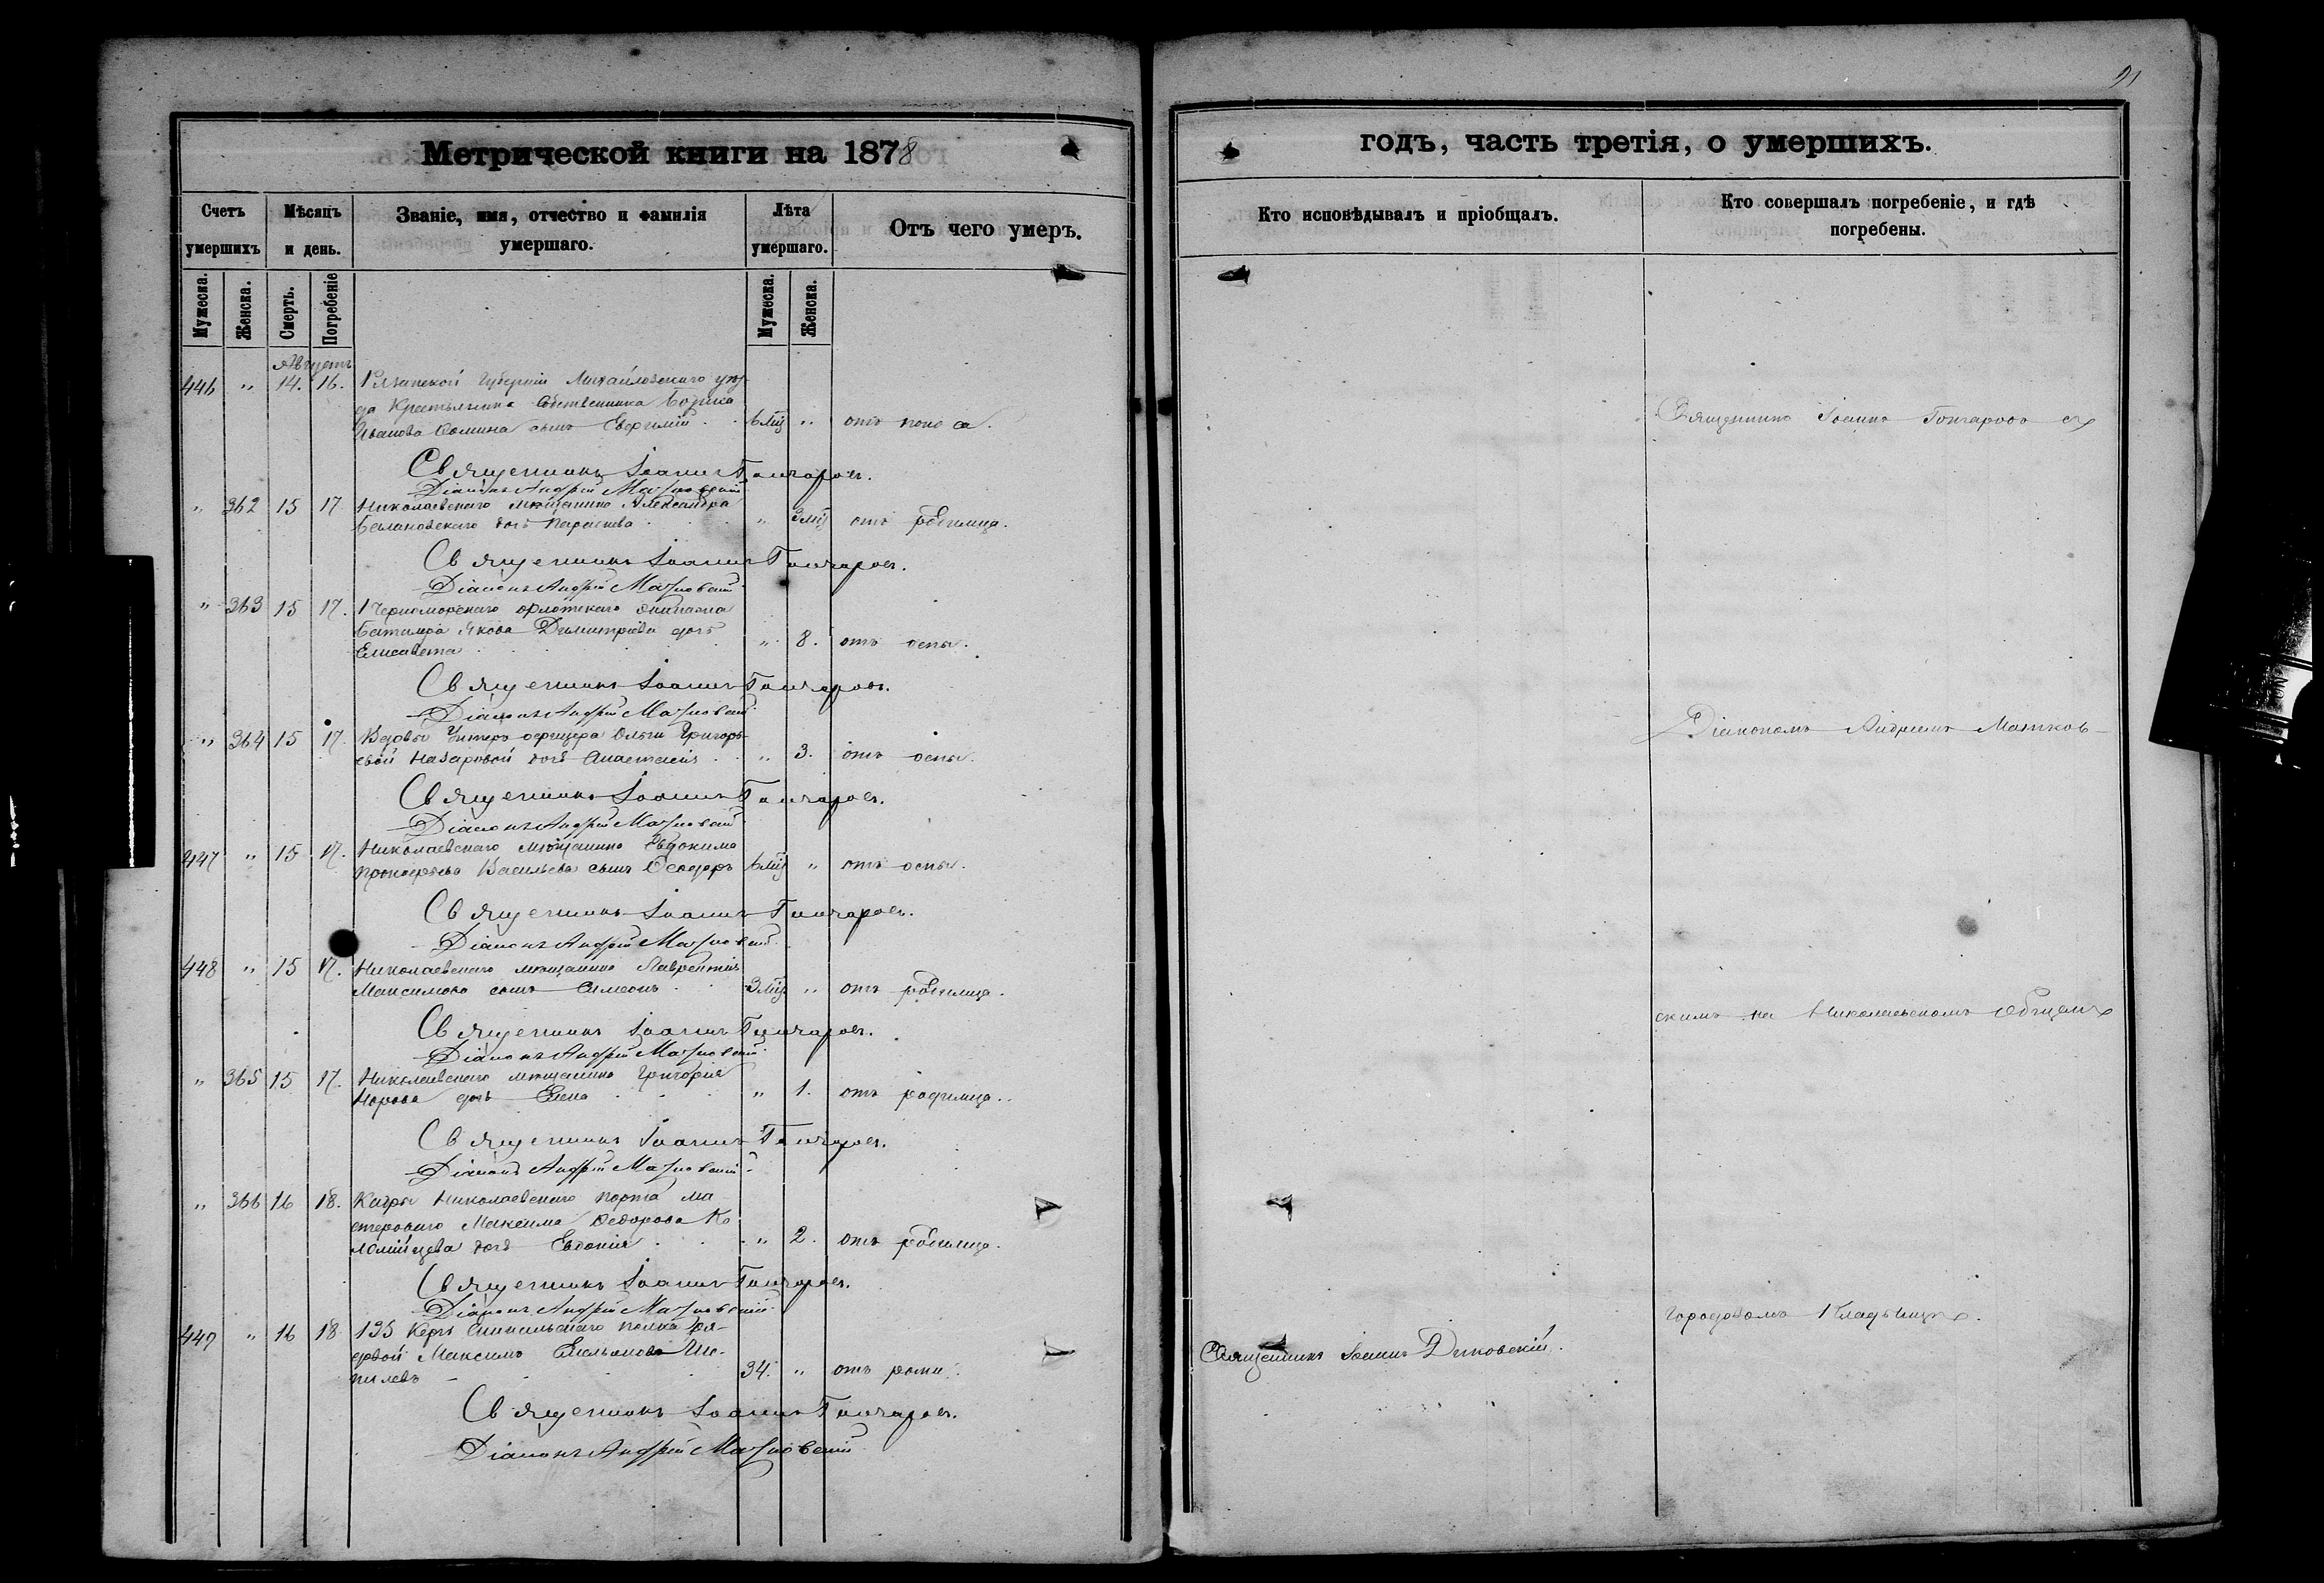 91
Метрической книги на 1878
годъ, часть третія, о умершихъ.
Счетъ умершихъ
Мѣсяцъ и день.
Званіе, имя, отчество и фамилія умершаго.
Лѣта умершаго.
Отъ чего умеръ.
Кто исповѣдывалъ и пріобщалъ.
Кто совершалъ погребеніе, и гдѣ погребены.
Мужеска.
Женска.
Смерть.
Погребеніе
Мужеска.
Женска.
Августъ
446 " 14. 16. Рязанской Губерніи Михайловскаго уѣз-
да Крестьянина Собственника
Иванова сынъ 6 мц " отъ поноса.
Священникъ Іоаннъ Гончаровъ съ
Священникъ Іоаннъ Гончаровъ.
Діаконъ Андрей Матковскій
" 362 15 17 Николаевскаго мѣщанина Александра
дочь Параскева " 3 мц отъ родимца.
Священникъ Іоаннъ Гончаровъ.
Діаконъ Андрей Матковскій
" 363 15 17. Черноморскаго флотскаго экипажа
Якова Димитріева дочь
Елисавета " 8. отъ оспы.
Священникъ Іоаннъ Гончаровъ.
Діаконъ Андрей Матковскій
Діакономъ Андреемъ Матков-
" 364 15 17. Вдовы Унтеръ-офицера Ольги Григорь-
евой Назаровой дочь Анастасія " 3. отъ оспы.
Священникъ Іоаннъ Гончаровъ.
Діаконъ Андрей Матковскій
447 " 15 17. Николаевскаго мѣщанина Евдокима
Прокофьева Васильева сынъ Ѳеодоръ 6 мц " отъ оспы.
Священникъ Іоаннъ Гончаровъ.
Діаконъ Андрей Матковскій.
448 " 15 17. Николаевскаго мѣщанина Лаврентія
Максимова сынъ Симеонъ 3 мц " отъ родимца.
скимъ на Николаевскомъ Общемъ
Священникъ Іоаннъ Гончаровъ.
Діаконъ Андрей Матковскій.
" 365 15 17. Николаевскаго мѣщанина Григорія
дочь Елена " 1. отъ родимца.
Священникъ Іоаннъ Гончаровъ.
Діаконъ Андрей Матковскій.
" 366 16 18. Николаевскаго порта ма-
стероваго Максима Ѳедорова Ко-
ломійцева дочь Евдокія " 2. отъ родимца.
Священникъ Іоаннъ Гончаровъ.
Діаконъ Андрей Матковскій
Городовомъ Кладбищѣ.
449 " 16 18 135 Керчь Еникальскаго полка ря-
довой Максимъ Емельяновъ Ше-
пилевъ 34. " отъ раны.
Священникъ Іоаннъ Диковскій.
Священникъ Іоаннъ Гончаровъ.
Діаконъ Андрей Матковскій